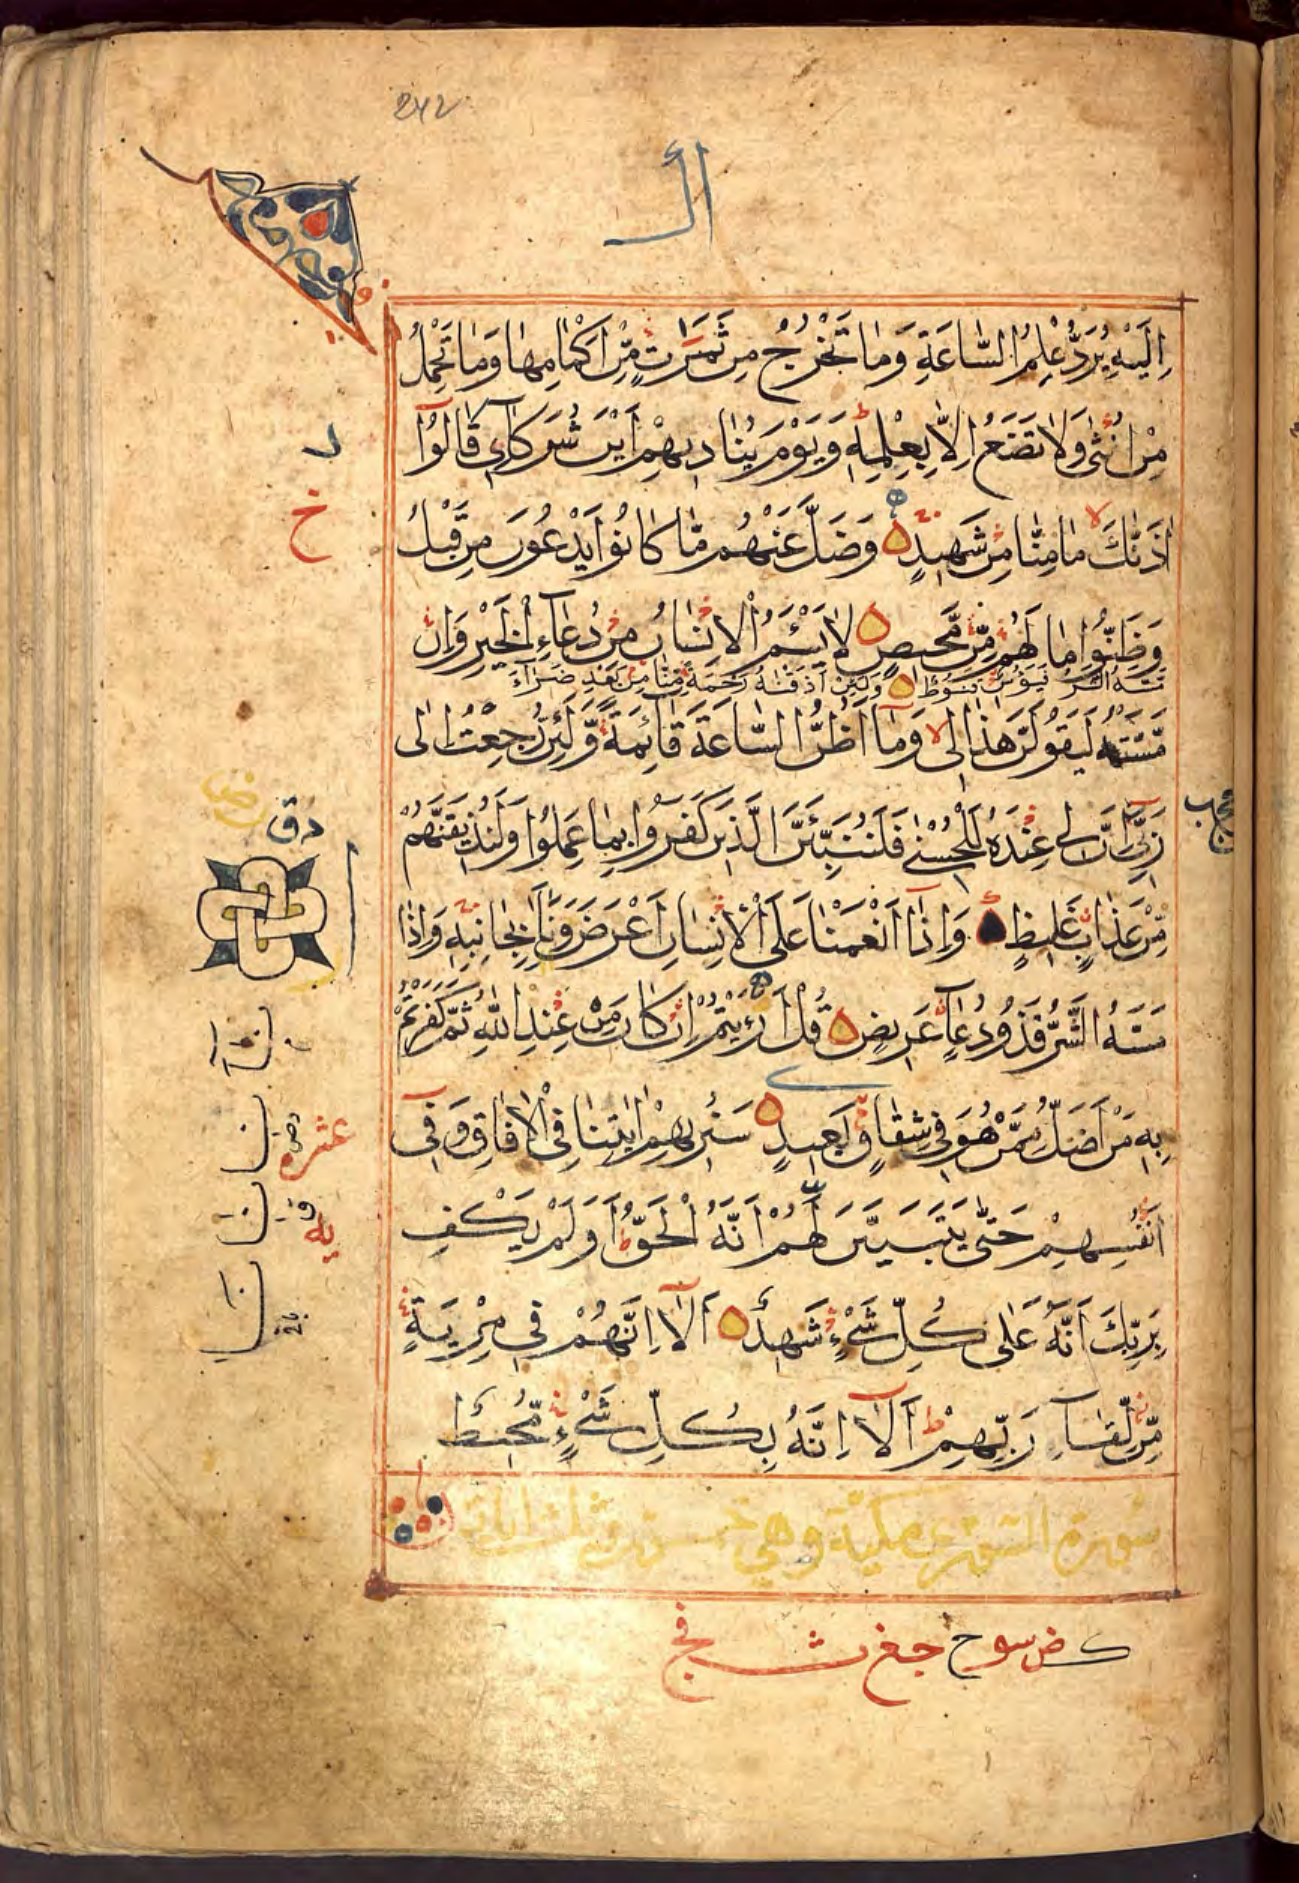 242
إِلَيْهِ يُرَدُّ عِلْمُ السَّاعَةِ وَمَا تَخْرُجُ مِنْ ثَمَرٰتٍ مِّنْ اَكْمَامِهَا وَمَا تَحْمِلُ
مِنْ اُنْثٰى وَلَا تَضَعُ اِلَّا بِعِلْمِهٖ وَيَوْمَ يُنَادِيهِمْ اَيْنَ شُرَكَآءِى قَالُوٓا
اٰذَنّٰكَ مَا مِنَّا مِنْ شَهِيدٍ وَضَلَّ عَنْهُمْ مَّا كَانُوا يَدْعُونَ مِنْ قَبْلُ
وَظَنُّوا مَا لَهُمْ مِّنْ مَّحِيصٍ لَا يَسْـَٔمُ الْاِنْسَانُ مِنْ دُعَآءِ الْخَيْرِ وَاِنْ
مَسَّهُ الشَّرُّ فَيَـُٔوسٌ قَنُوطٌ وَلَئِنْ اَذَقْنٰهُ رَحْمَةً مِّنَّا مِنْ بَعْدِ ضَرَّآءَ
مَسَّتْهُ لَيَقُولَنَّ هٰذَا لِى وَمَآ اَظُنُّ السَّاعَةَ قَآئِمَةً وَّلَئِنْ رُّجِعْتُ اِلٰى
رَبِّىٓ اِنَّ لِى عِنْدَهُ لَلْحُسْنٰى فَلَنُنَبِّئَنَّ الَّذِينَ كَفَرُوا بِمَا عَمِلُوا وَلَنُذِيقَنَّهُمْ
مِّنْ عَذَابٍ غَلِيظٍ وَاِذَآ اَنْعَمْنَا عَلَى الْاِنْسَانِ اَعْرَضَ وَنَاٰ بِجَانِبِهٖ وَاِذَا
مَسَّهُ الشَّرُّ فَذُو دُعَآءٍ عَرِيضٍ قُلْ اَرَءَيْتُمْ اِنْ كَانَ مِنْ عِنْدِ اللّٰهِ ثُمَّ كَفَرْتُمْ
بِهٖ مَنْ اَضَلُّ مِمَّنْ هُوَ فِى شِقَاقٍ بَعِيدٍ سَنُرِيهِمْ اٰيٰتِنَا فِى الْاٰفَاقِ وَفِىٓ
اَنْفُسِهِمْ حَتّٰى يَتَبَيَّنَ لَهُمْ اَنَّهُ الْحَقُّ اَوَلَمْ يَكْفِ
بِرَبِّكَ اَنَّهُ عَلٰى كُلِّ شَىْءٍ شَهِيدٌ اَلَآ اِنَّهُمْ فِى مِرْيَةٍ
مِّنْ لِّقَآءِ رَبِّهِمْ اَلَآ اِنَّهُ بِكُلِّ شَىْءٍ مُّحِيطٌ
سورة مكية وهي
عشر